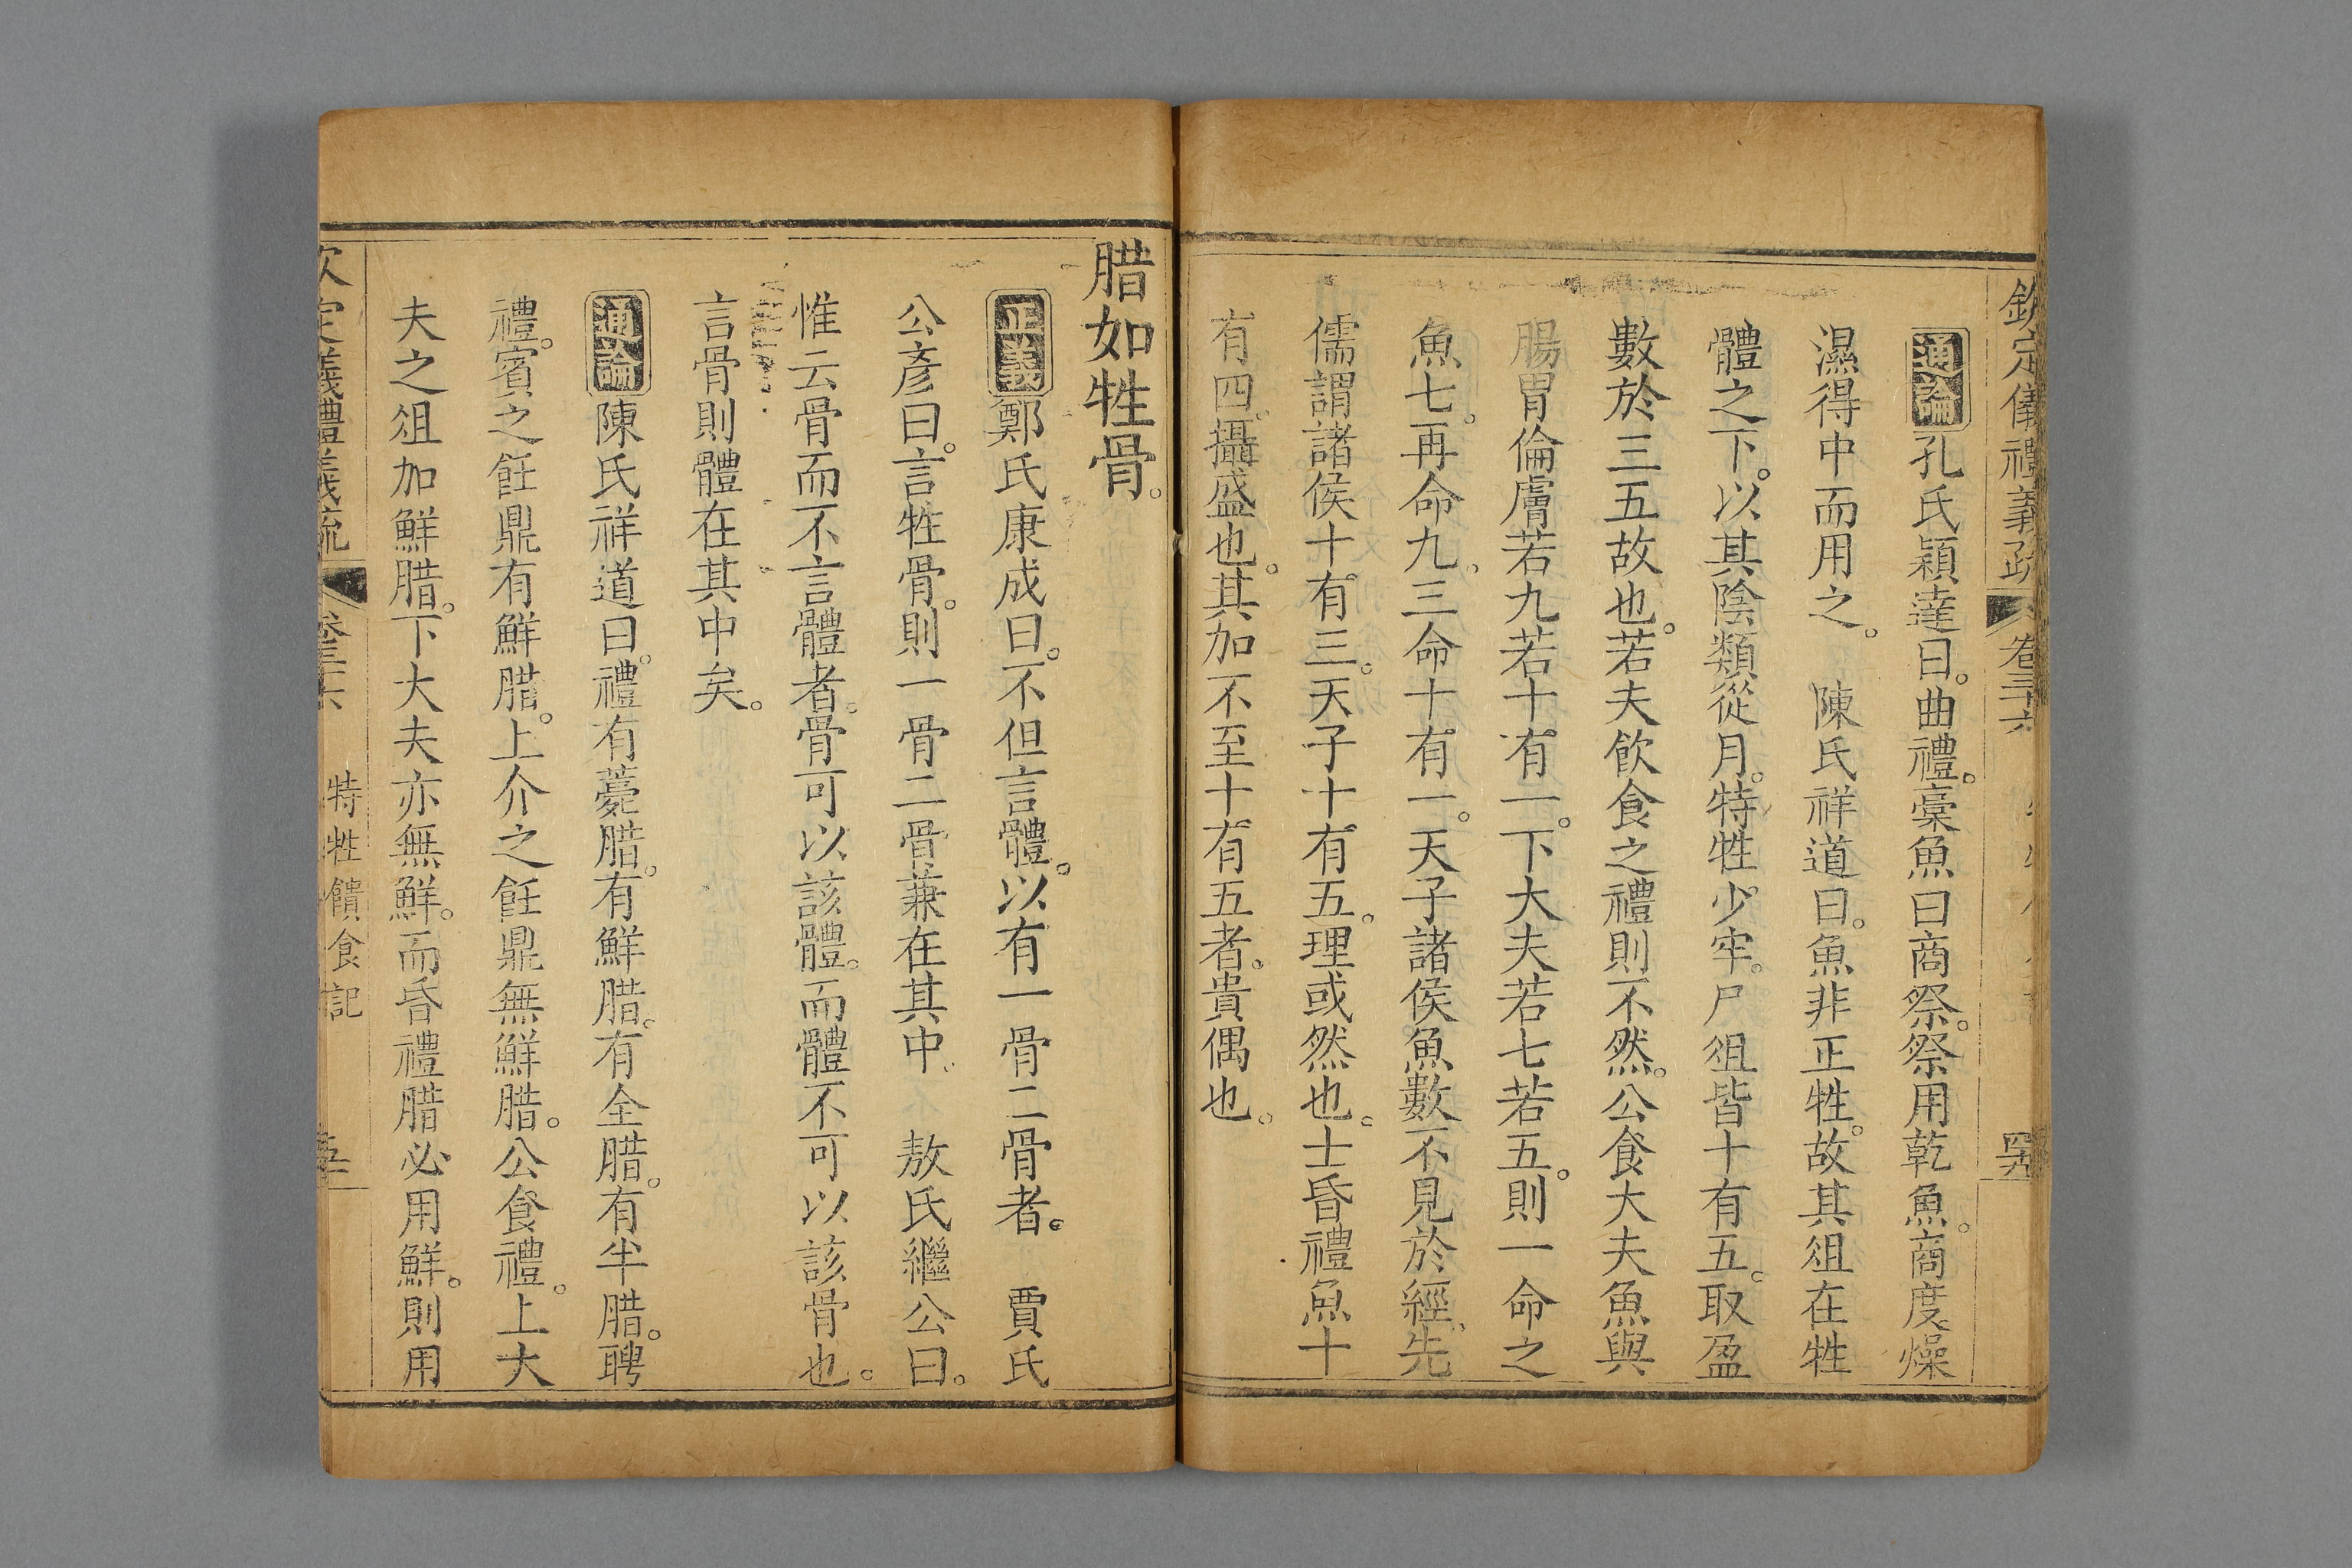 欽定儀禮義疏 卷三十六
通論孔氏穎達曰。曲禮。槀魚曰商祭。祭用乾魚。商度。燥
濕得中而用之。 陳氏祥道曰。魚非正牲。故其俎在牲
體之下。以其陰類從月。特牲少牢。尸俎皆十有五。取盈
數於三五故也。若夫飲食之禮則不然。公食大夫魚與
腸胃倫膚若九若十有一。下大夫若七若五。則一命之
魚七。再命九。三命十有一。天子諸侯魚數不見於經。先
儒謂諸侯十有三。天子十有五。理或然也。士昏禮魚十
有四。攝盛也。其加不至十有五者。貴偶也。
腊如牲骨。
正義鄭氏康成曰。不但言體。以有一骨二骨者。 賈氏
公彥曰。言牲骨。則一骨二骨兼在其中。 敖氏繼公曰。
惟云骨而不言體者。骨可以該體。而體不可以該骨也。
言骨則體在其中矣。
通論陳氏祥道曰。禮有薧腊。有鮮腊。有全腊。有半腊。聘
禮。賓之飪鼎有鮮腊。上介之飪鼎無鮮腊。公食禮。上大
夫之俎加鮮腊。下大夫亦無鮮。而昏禮腊必用鮮。則用
欽定儀禮義疏 卷三十六 特牲饋食記